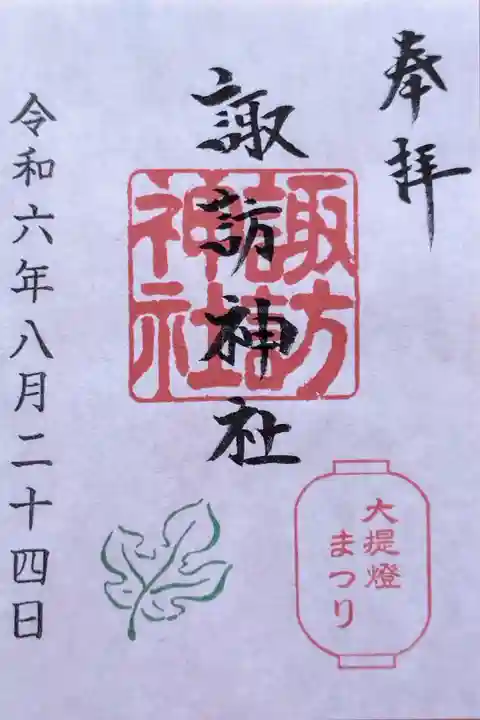 奉拝
諏訪神社
諏訪
神社
令和六年八月二十四日
大提燈
まつり